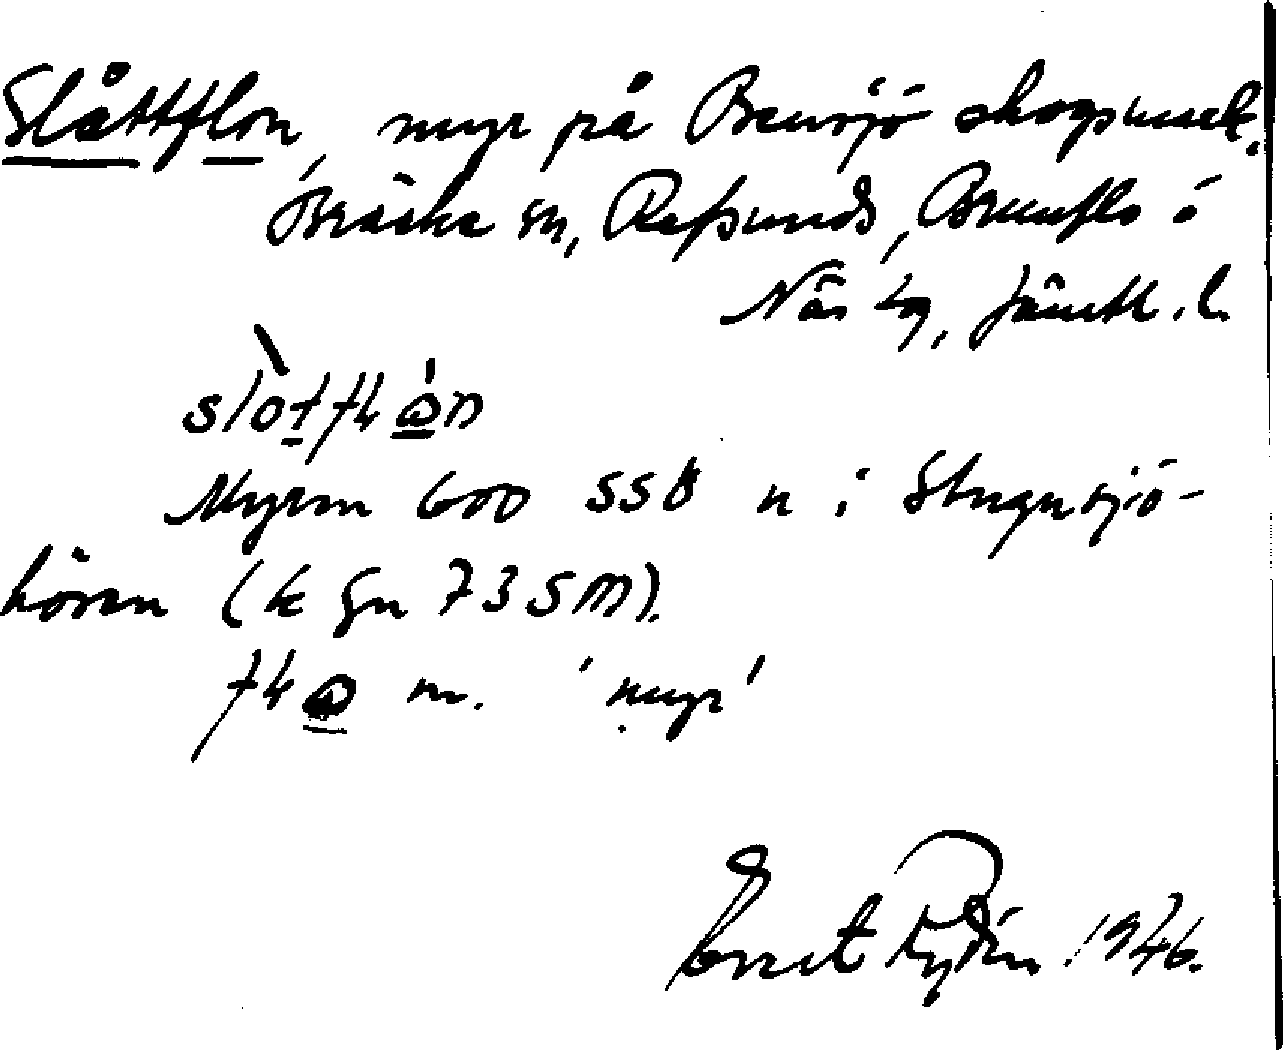 Slåttflon, myr på Bensjö skogsmark.
Bräcke sn, Refsunds, Brunflo o
Näs tg, Jämtl. l.
slòtfłan
Myren 600 SSÖ n i Stugusjö-
hören (k Gn 735M).
fła m. 'myr'
Ernst Rydén 1946.